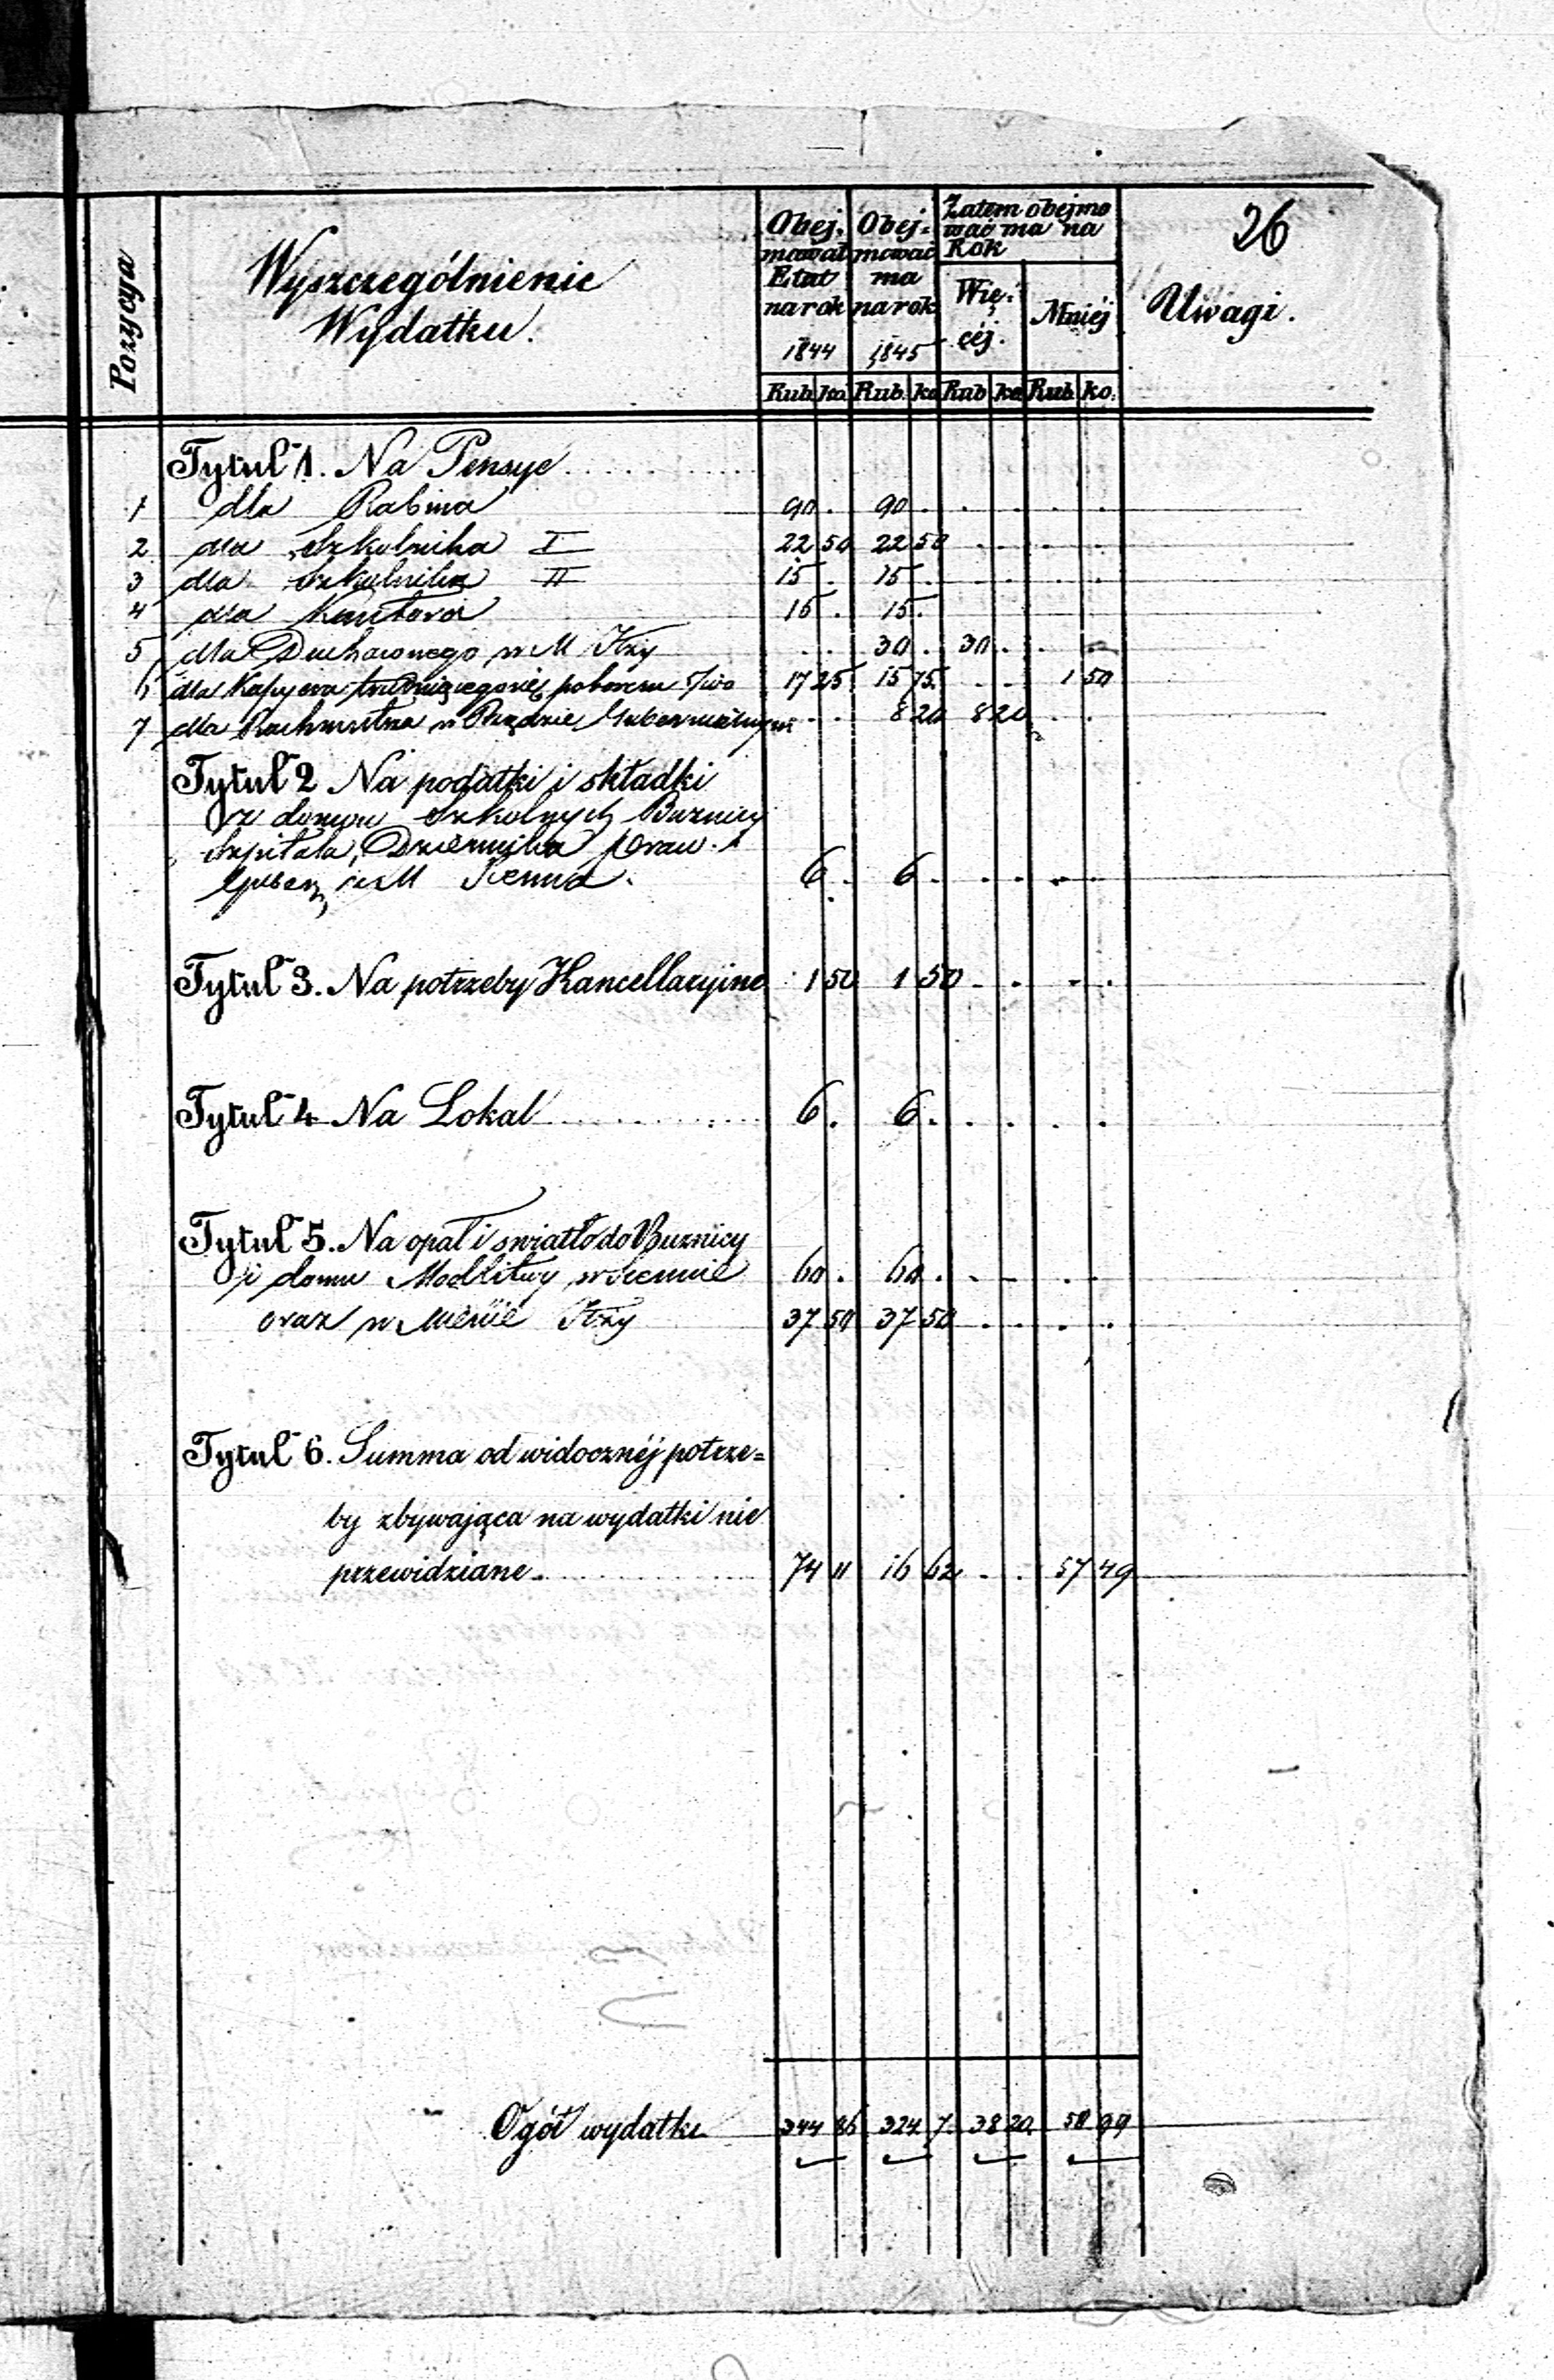 26
Pozycya
Wyszczególnienie
Wydatku.
Obej. mował Etat na rok 1844
Obej= mować ma na rok 1845
Zatem obejmo wać ma na Rok
Wię: céj.
Mniéj
Uwagi.
Rub ko Rub. ko Rub ko Rub ko.
Tytuł 1. Na Pensye
1 dla Rabina 90 . 90 . . . . .
2 dla Szkolnika I 22 50 22 50 . . . .
3 dla Szkolnika II 15 . 15 . . . . .
4 dla Kantora 15 . 15 .
5 dla Duchownego w M Iłży . . 30 . 30 . .
6 dla Kassyera trudniącego się poborem 17 25 15 75 - - 1 50
7 dla Rachmistrza w Rządzie Gubernialnym . . 8 20 8 20 . .
Tytuł 2 Na podatki i składki
z domów Szkolnych Buznicy
Szpitala,
w M Sienna. 6 . 6 . . . . .
Tytuł 3. Na potrzeby Kancellaryine 1 50 1 50 - . - .
Tytuł 4 Na Lokal 6 . 6 . . . . .
Tytuł 5. Na opał i swiatło do Buznicy
i domu Modlitwy w Siennie 60 . 60 . . - . -
oraz w Mieście Iłży 37 50 37 50 . . . .
Tytuł 6. Summa od widocznéj potrze=
by zbywająca na wydatki nie
przewidziane 74 11 16 62 - . 57 49
Ogół wydatku 344 86 324 7. 38 20. 58 99